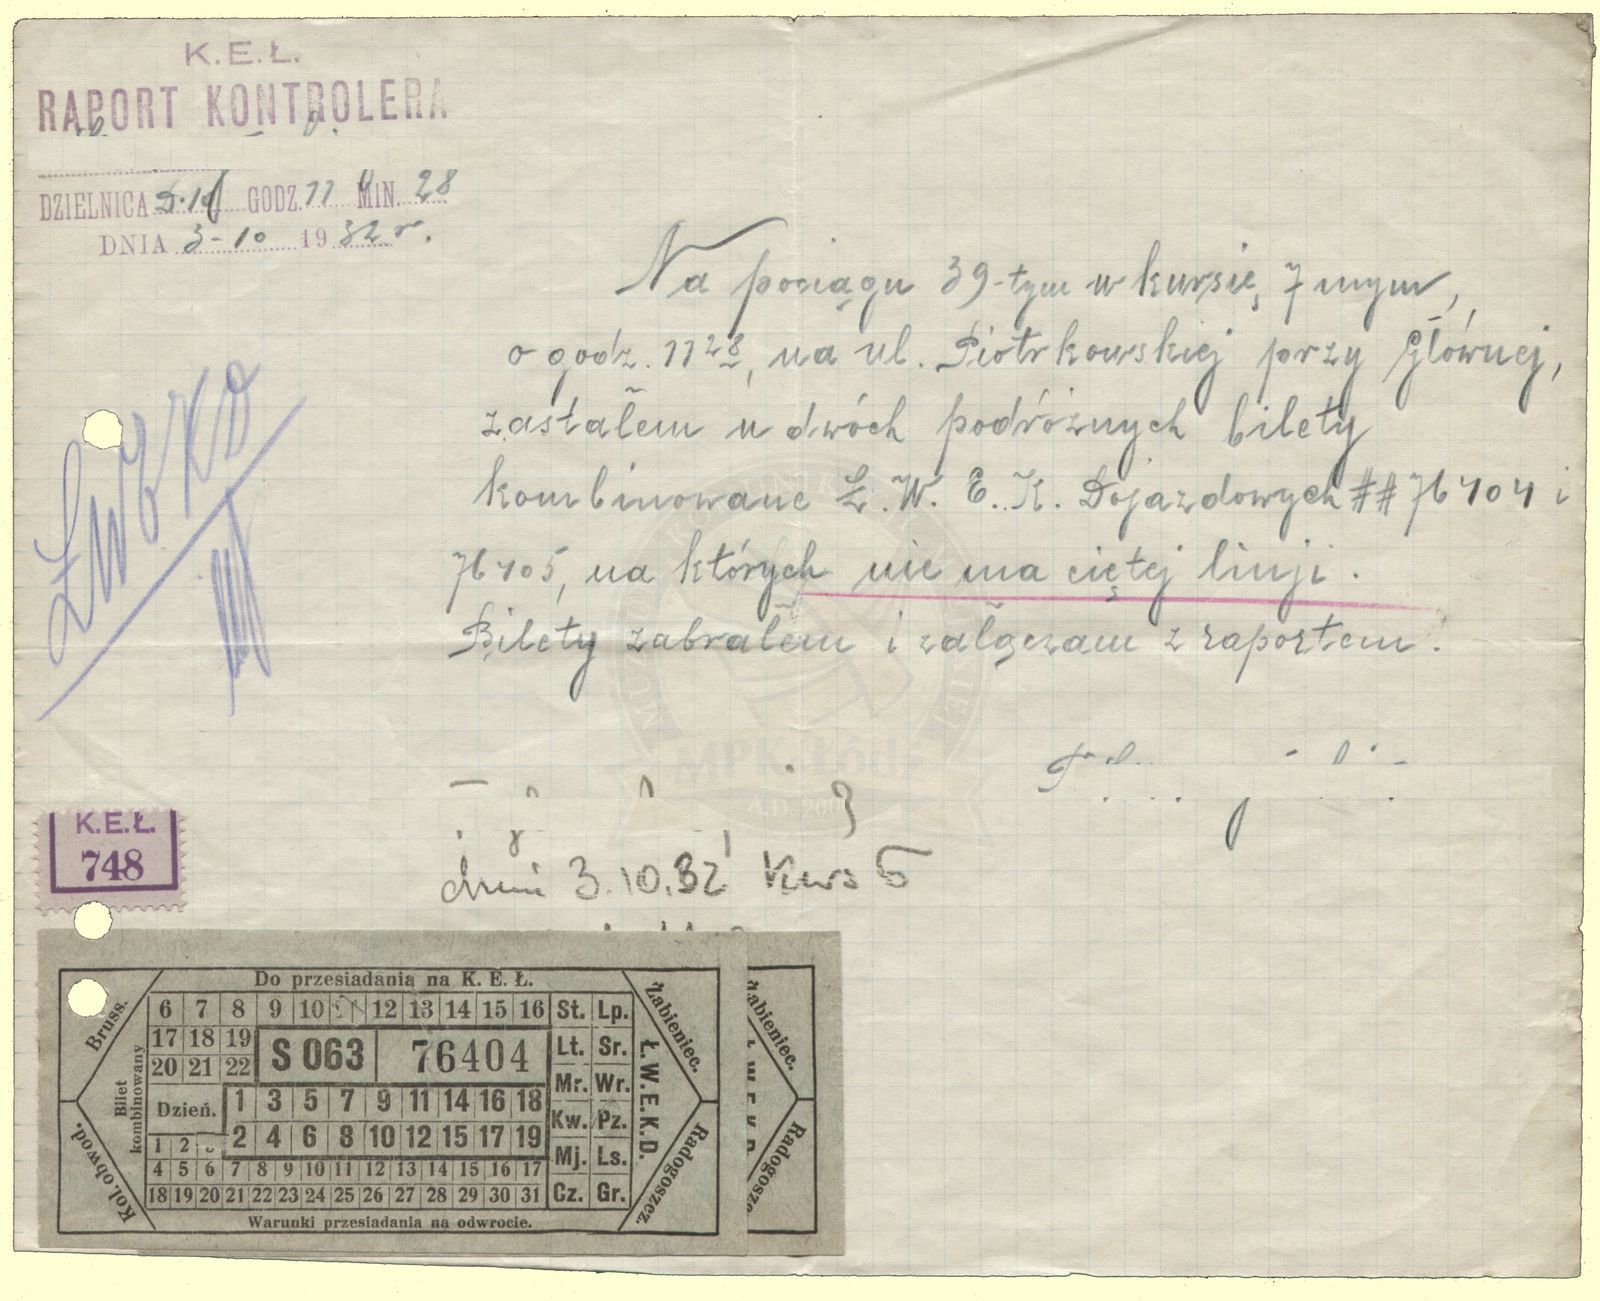 K.E.Ł.
RAPORT KONTROLERA
DZIELNICA GODZ. 11 MIN. 28
DNIA 3-10 1932 r.
Na pociągu 39-tym w kursie 7 mym,
o godz. 11 28, na ul. Piotrkowskiej przy Głównej,
zastałem u dwóch podróżnych bilety
kombinowane Ł. W. E. K. Dojazdowych ## 76404 i
76405, na których nie ma ciętej linji.
Bilety zabrałem i załączam z raportem.
dnia 3.10.32 Kurs 5
K.E.Ł.
748
Do przesiadania na K. E. Ł.
Bruss.
Kol. obwod.
Bilet kombinowany
6 7 8 9 10 12 13 14 15 16
17 18 19
20 21 22
S 063 76404
Dzień.
1 3 5 7 9 11 14 16 18
2 4 6 8 10 12 15 17 19
1 2
4 5 6 7 8 9 10 11 12 13 14 15 16 17
18 19 20 21 22 23 24 25 26 27 28 29 30 31
St. Lp.
Lt. Sr.
Mr. Wr.
Kw. Pz.
Mj. Ls.
Cz. Gr.
Ł.W.E.K.D.
Żabieniec.
Radogoszcz.
Warunki przesiadania na odwrocie.
Żabieniec.
Radogoszcz
MPK-Łódź